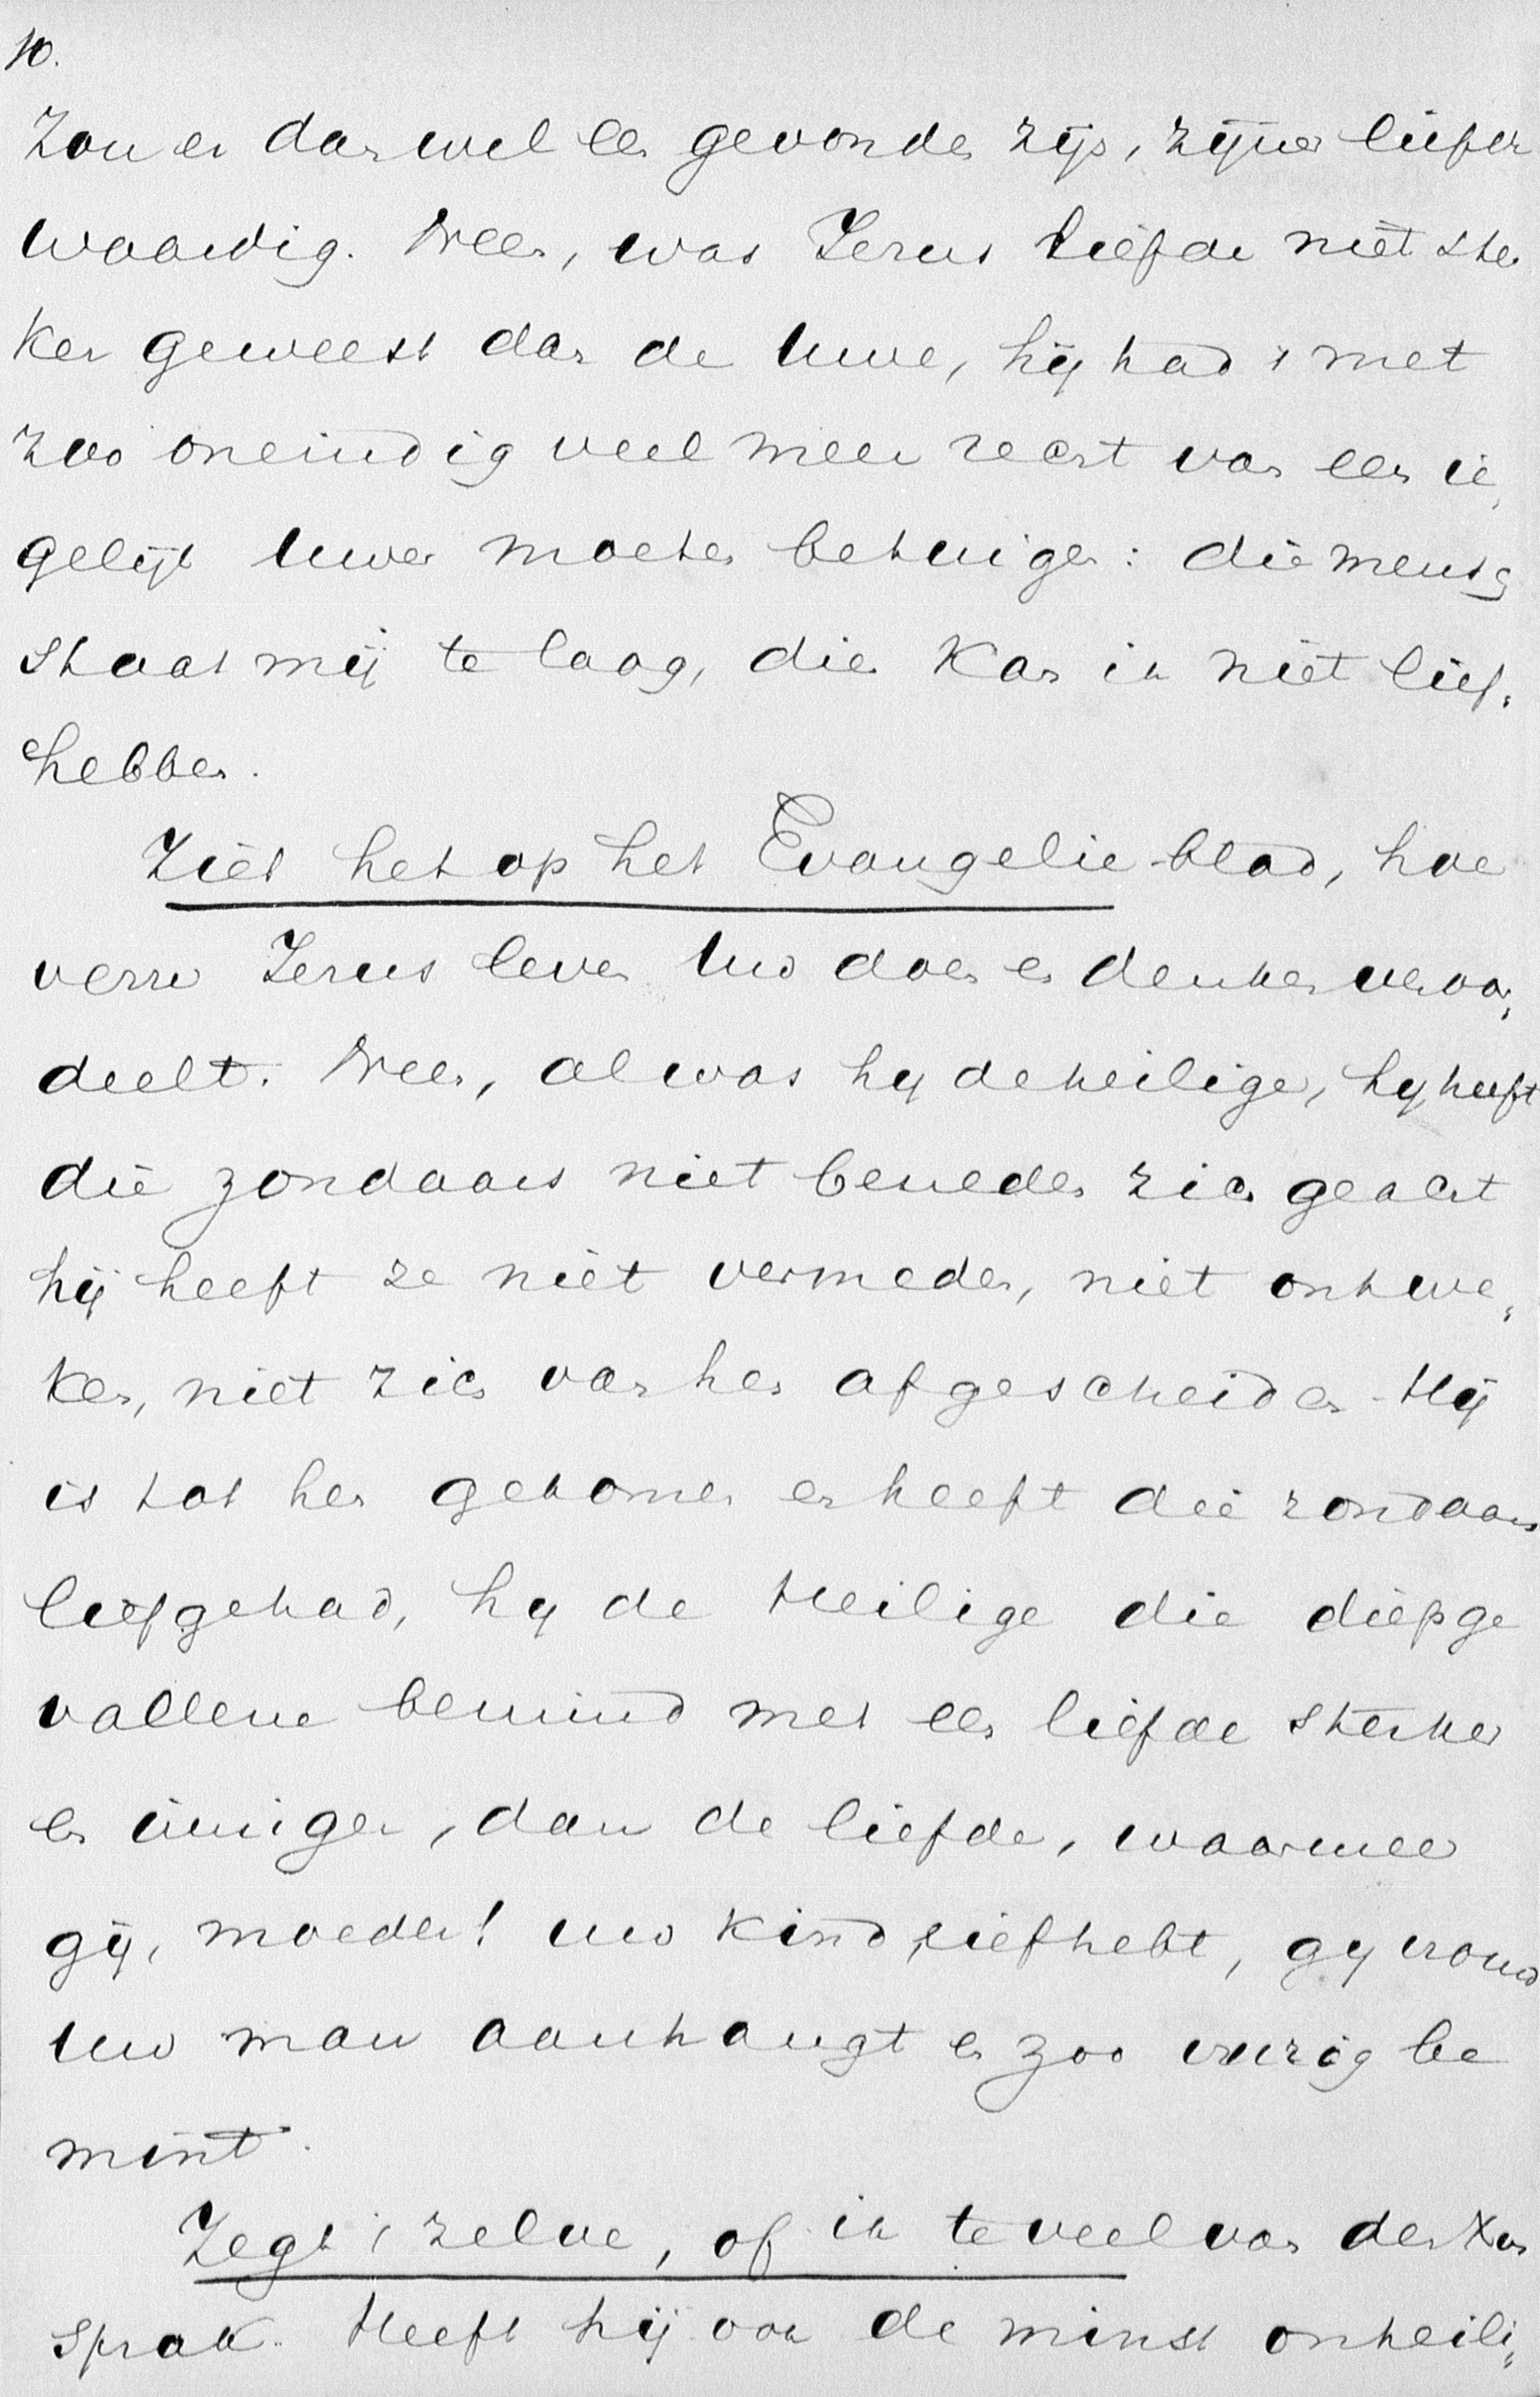 10.
Zou er dan wel een gevonden zijn, zijner liefde
waardig. Neen, was Jezus liefde niet ster
ker geweest dan de Uwe, hij had 't met
zoo oneindig veel meer recht van een ie„
gelijk Uwer moeten betuigen: die mensch
staat mij te laag, dien kan ik niet lief„
hebben.
Ziet het op het Evangelie blad, hoe
verre Jezus leven Uw doen en denken veroor„
deelt. Neen, al was hij de heilige, hij heeft
die zondaars niet beneden zich geacht
hij heeft ze niet vermeden, niet ontwe„
ken, niet zich van hen afgescheiden - Hij
is tot hen gekomen en heeft die zondaars
liefgehad, hij de Heilige die diepge
vallene bemind met een liefde sterker
en inniger, dan de liefde, waarmee
gij, moeder! uw kind liefhebt, gij vrouw
Uw man aanhangt en zoo vurig be
mint.
Zegt 't zelve, of ik te veel van den Xus
sprak. Heeft hij ook de minst onheili„